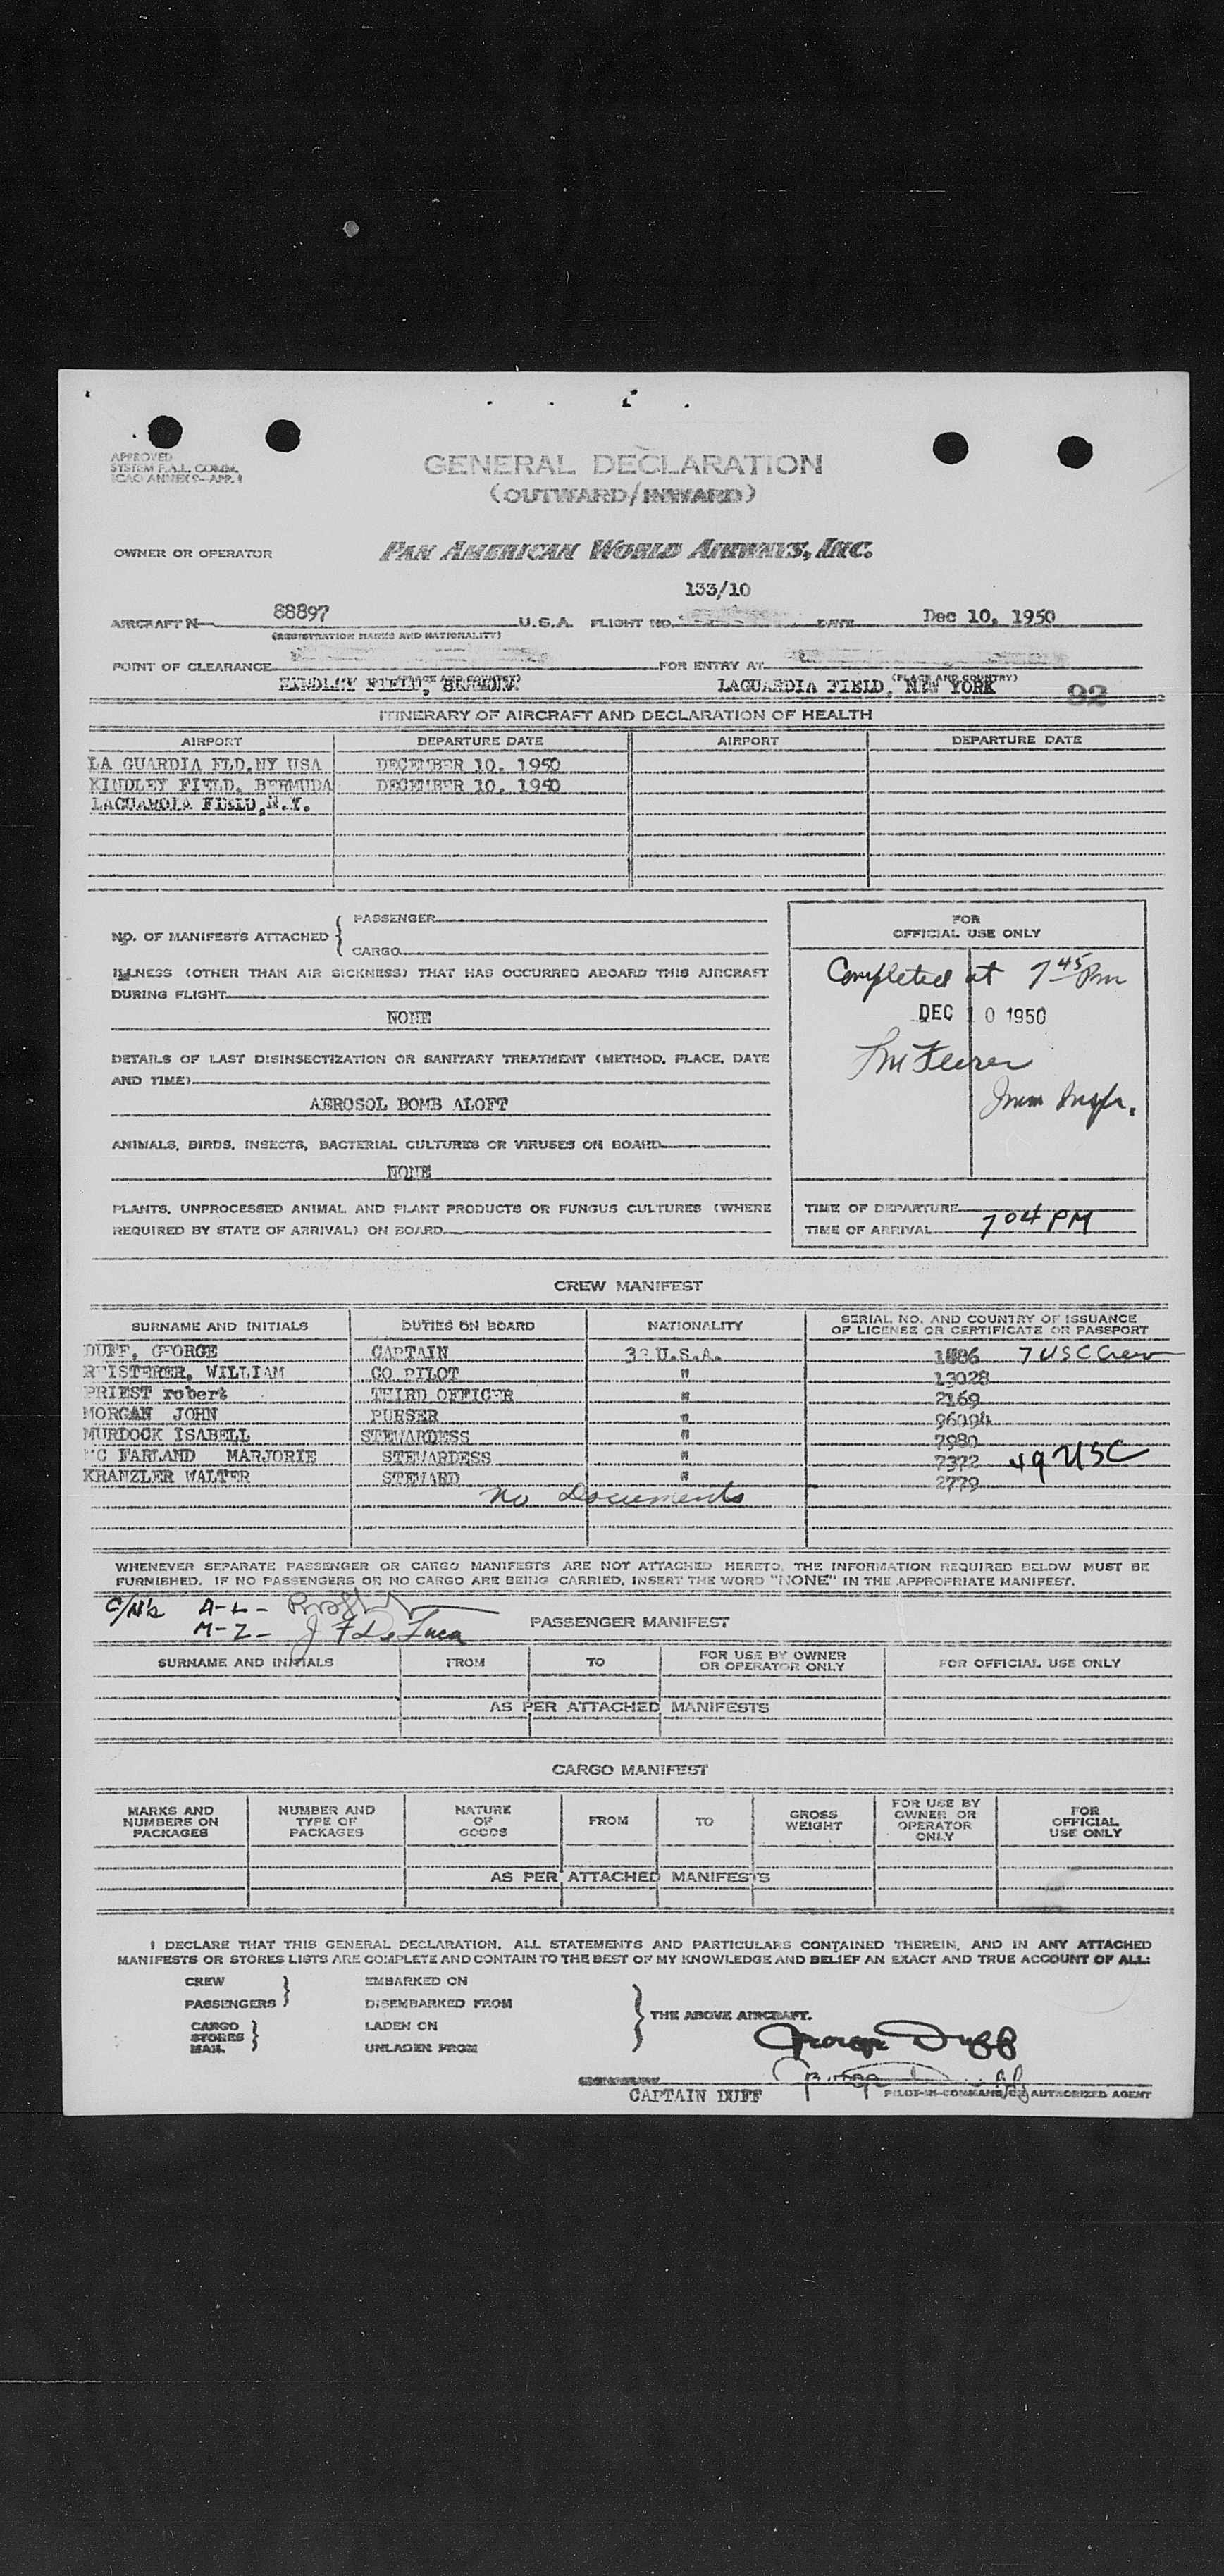 APPROVED
SYSTEM F.A.L. COMM.
ICAO ANNEX 9—APP. 1
GENERAL DECLARATION
(OUTWARD/INWARD)
OWNER OR OPERATOR PAN AMERICAN WORLD AIRWAYS, INC.
133/10
AIRCRAFT N— 88897 U.S.A. FLIGHT NO. DATE Dec 10, 1950
(REGISTRATION MARKS AND NATIONALITY)
POINT OF CLEARANCE FOR ENTRY AT
KINDLEY FIELD, BERMUDA LAGUARDIA FIELD, NEW YORK (PLACE AND COUNTRY) 92
ITINERARY OF AIRCRAFT AND DECLARATION OF HEALTH
AIRPORT DEPARTURE DATE AIRPORT DEPARTURE DATE
LA GUARDIA FLD.NY USA DECEMBER 10. 1950
KINDLEY FIELD. BERMUDA DECEMBER 10. 1950
LAGUARDIA FIELD,N.Y.
NO. OF MANIFESTS ATTACHED { PASSENGER
CARGO
ILLNESS (OTHER THAN AIR SICKNESS) THAT HAS OCCURRED ABOARD THIS AIRCRAFT
DURING FLIGHT
NONE
DETAILS OF LAST DISINSECTIZATION OR SANITARY TREATMENT (METHOD, PLACE, DATE
AND TIME)
AEROSOL BOMB ALOFT
ANIMALS, BIRDS, INSECTS, BACTERIAL CULTURES OR VIRUSES ON BOARD
NONE
PLANTS, UNPROCESSED ANIMAL AND PLANT PRODUCTS OR FUNGUS CULTURES (WHERE
REQUIRED BY STATE OF ARRIVAL) ON BOARD
FOR
OFFICIAL USE ONLY
Completed at 7 45 Pm
DEC 10 1950
Imm Insptr.
TIME OF DEPARTURE
TIME OF ARRIVAL 7 04 PM
CREW MANIFEST
SURNAME AND INITIALS DUTIES ON BOARD NATIONALITY SERIAL NO. AND COUNTRY OF ISSUANCE
OF LICENSE OR CERTIFICATE OR PASSPORT
DUFF, GEORGE CAPTAIN U.S.A. 1886 7 USC Crew
REISTERER, WILLIAM CO PILOT " 13028
PRIEST robert THIRD OFFICER " 2169
MORGAN JOHN PURSER " 96094
MURDOCK ISABELL STEWARDESS " 7980
MC FARLAND MARJORIE STEWARDESS " 7372 49 USC
KRANZLER WALTER STEWARD " 2779
No Documents
WHENEVER SEPARATE PASSENGER OR CARGO MANIFESTS ARE NOT ATTACHED HERETO, THE INFORMATION REQUIRED BELOW MUST BE
FURNISHED. IF NO PASSENGERS OR NO CARGO ARE BEING CARRIED, INSERT THE WORD "NONE" IN THE APPROPRIATE MANIFEST.
A-L-
M-Z- J F DeLuca
PASSENGER MANIFEST
SURNAME AND INITIALS FROM TO FOR USE BY OWNER
OR OPERATOR ONLY FOR OFFICIAL USE ONLY
AS PER ATTACHED MANIFESTS
CARGO MANIFEST
MARKS AND
NUMBERS ON
PACKAGES NUMBER AND
TYPE OF
PACKAGES NATURE
OF
GOODS FROM TO GROSS
WEIGHT FOR USE BY
OWNER OR
OPERATOR
ONLY FOR
OFFICIAL
USE ONLY
AS PER ATTACHED MANIFESTS
I DECLARE THAT THIS GENERAL DECLARATION, ALL STATEMENTS AND PARTICULARS CONTAINED THEREIN, AND IN ANY ATTACHED
MANIFESTS OR STORES LISTS ARE COMPLETE AND CONTAIN TO THE BEST OF MY KNOWLEDGE AND BELIEF AN EXACT AND TRUE ACCOUNT OF ALL:
CREW EMBARKED ON
PASSENGERS DISEMBARKED FROM
THE ABOVE AIRCRAFT.
CARGO LADEN ON
STORES
MAIL UNLADEN FROM
George Duff
George Duff
SIGNATURE
CAPTAIN DUFF PILOT-IN-COMMAND OR AUTHORIZED AGENT